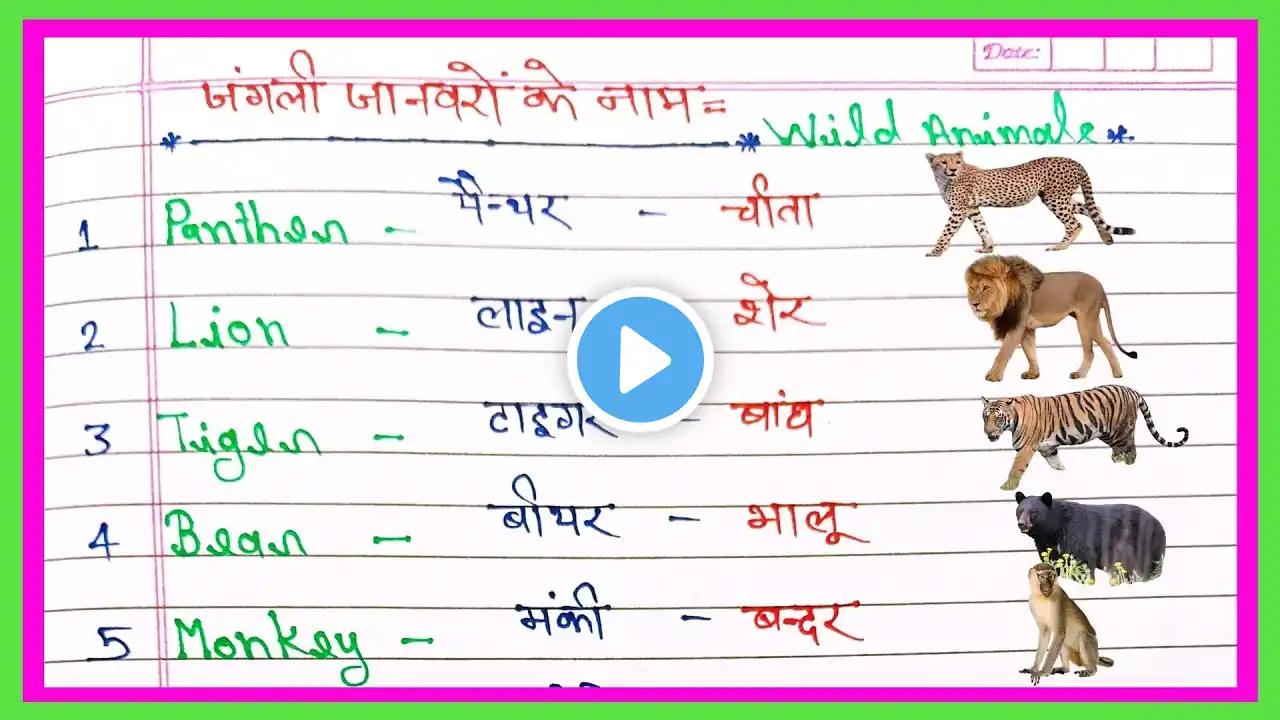 Date:
जंगली जानवरों के नाम =
* * Wild Animals *
1 Panther - पैन्थर - चीता
2 Lion - लाइन शेर
3 Tiger - टाइगर - बांघ
4 Bear - बीयर - भालू
5 Monkey - मंकी - बन्दर